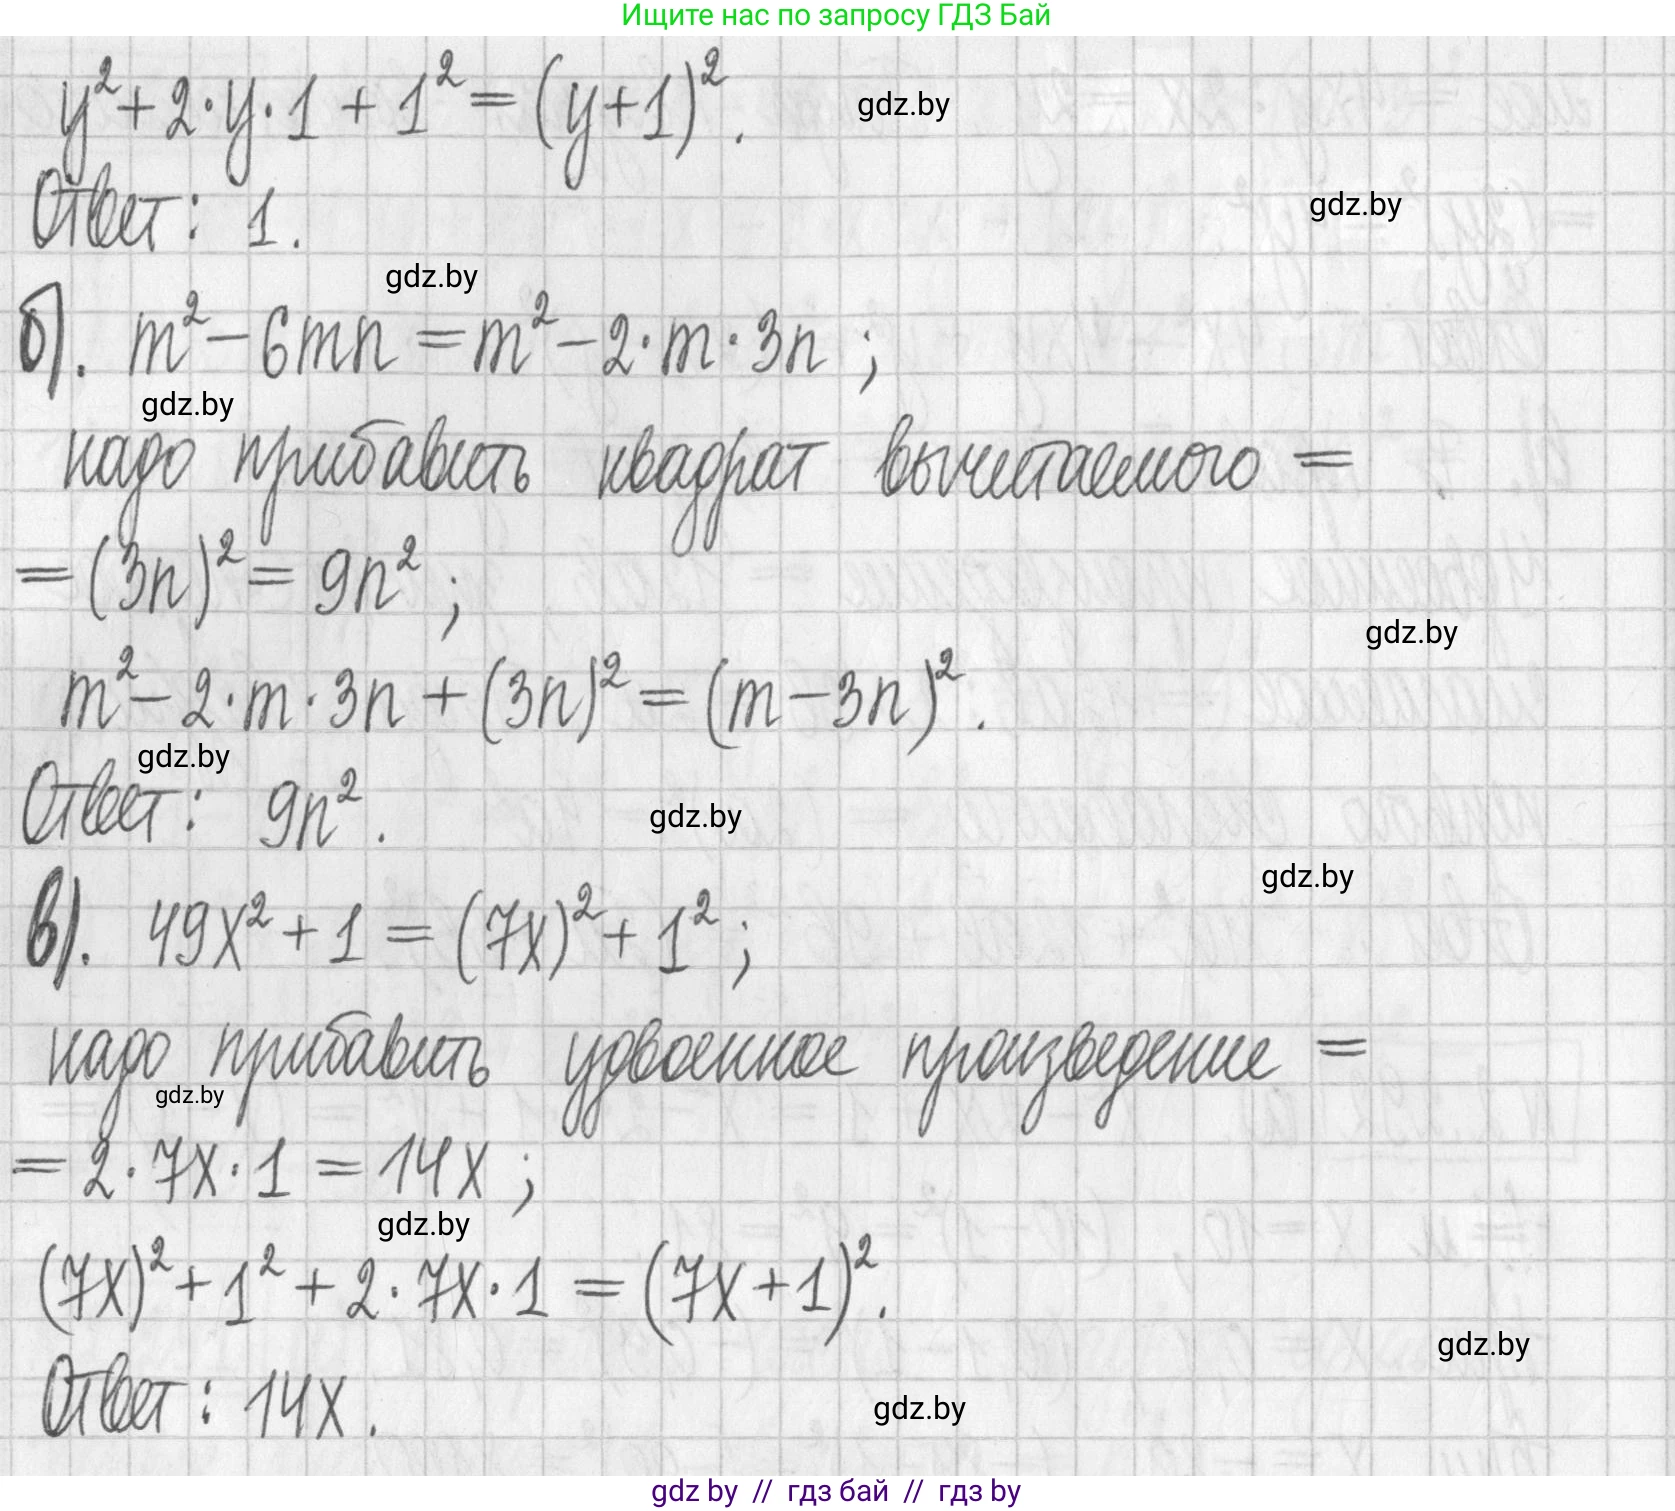 Ищите нас по запросу ГДЗ Бай
y² + 2·y·1 + 1² = (y+1)².
gdz.by
Ответ: 1.
gdz.by
gdz.by
б). m² - 6mn = m² - 2·m·3n ;
gdz.by
надо прибавить квадрат вычитаемого =
= (3n)² = 9n² ;
gdz.by
m² - 2·m·3n + (3n)² = (m - 3n)².
gdz.by
Ответ: 9n².
gdz.by
gdz.by
в). 49x² + 1 = (7x)² + 1² ;
надо прибавить удвоенное произведение =
gdz.by
= 2·7x·1 = 14x ;
gdz.by
(7x)² + 1² + 2·7x·1 = (7x+1)².
gdz.by
Ответ: 14x.
gdz.by
gdz by // гдз бай // гдз by